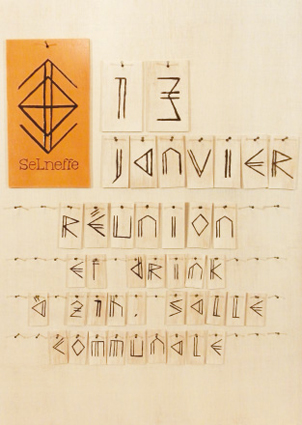 SeLneffe
13
JANVIER
RÉUNION
ET DRINK
À 20H. SALLE
COMMUNALE